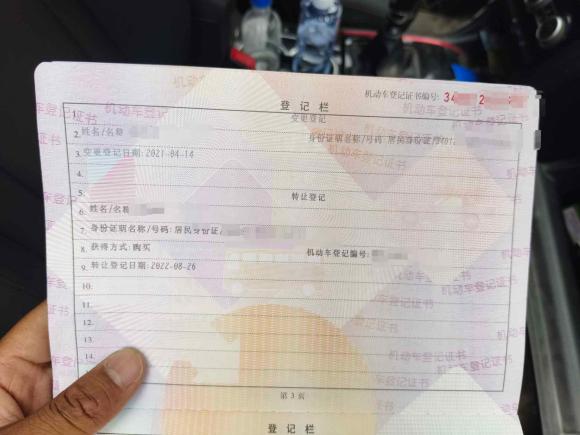 机动车登记证书编号: 34 2
登记栏
1. 变更登记
2. 姓名/名称 身份证明名称/号码: 居民身份证
3. 变更登记日期: 2021-04-14
4.
5. 转让登记
6. 姓名/名称
7. 身份证明名称/号码: 居民身份证/
8. 获得方式: 购买 机动车登记编号:
9. 转让登记日期: 2022-08-26
10.
11.
12.
13.
14.
第 3 页
登记栏
机动车登记证书